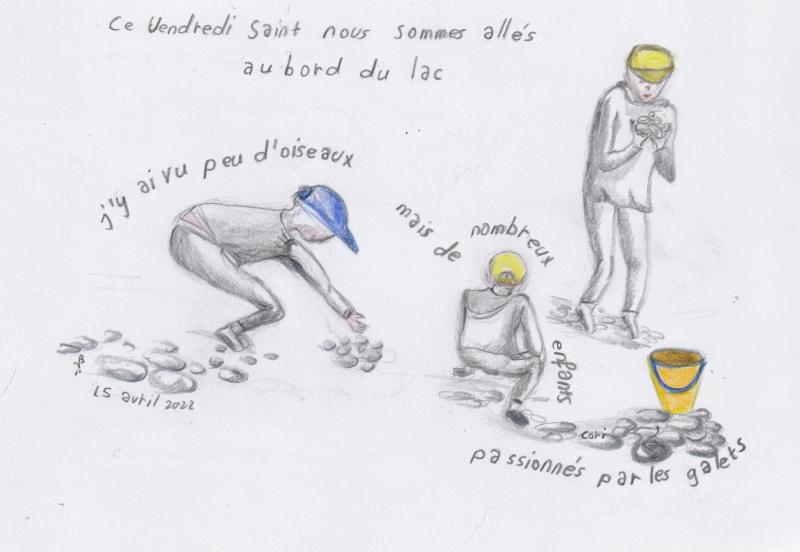 Ce Vendredi Saint nous sommes allés
au bord du lac
j'y ai vu peu d'oiseaux
mais de nombreux
enfants
passionnés par les galets
15 avril 2022